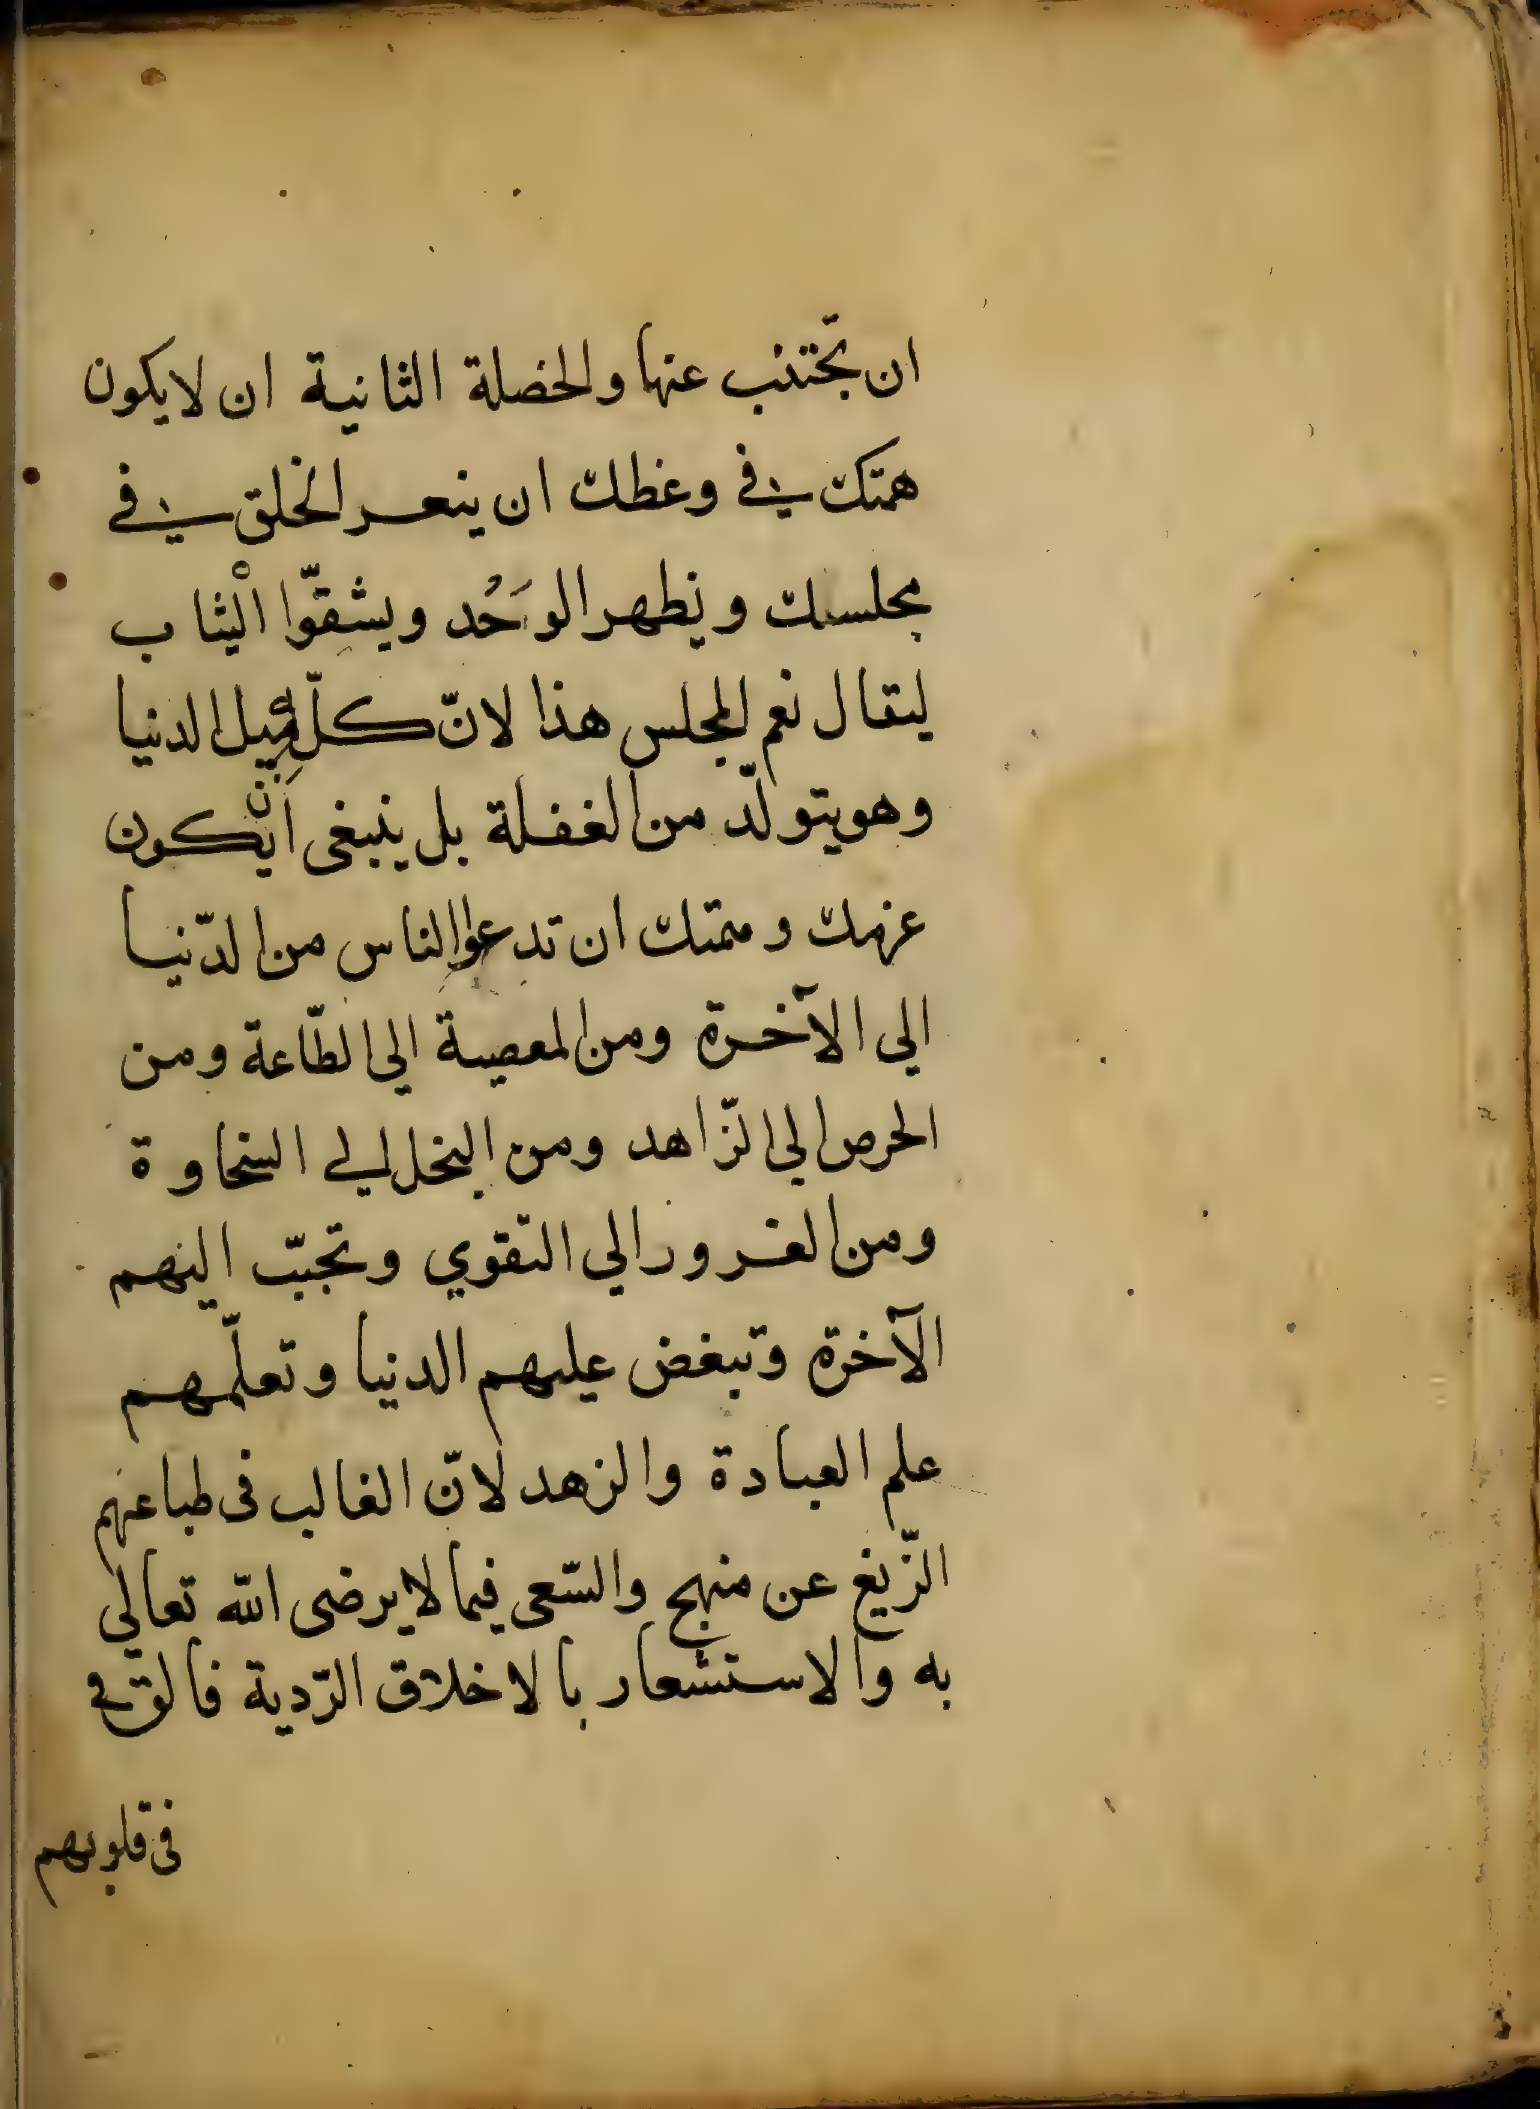 ان تجتنب عنها والخصلة الثانية ان لا يكون
همتك في وعظك ان ينعر الخلق في
مجلسك ويظهر الوَحُد ويشقّوا الْثياب
ليقال نعم المجلس هذا لانّ كلّه ميل الدنيا
وهو يتولّد من الغفلة بل ينبغى اَن يكون
عزمك وهمتك ان تدعوا الناس من الدّنيا
الي الآخرة ومن المعصية الي الطّاعة ومن
الحرص الي الزّاهد ومن البخل الي السخاوة
ومن الغرور الي التقوي وتحبّب اليهم
الآخرة وتبغض عليهم الدنيا وتعلّمهم
علم العبادة والزهد لانّ الغالب فى طباعهم
الزّيغ عن منهج والسّعى فيما لا يرضى الله تعالي
به والاستشعار بالاخلاق الرّدية فالق في
فى قلوبهم